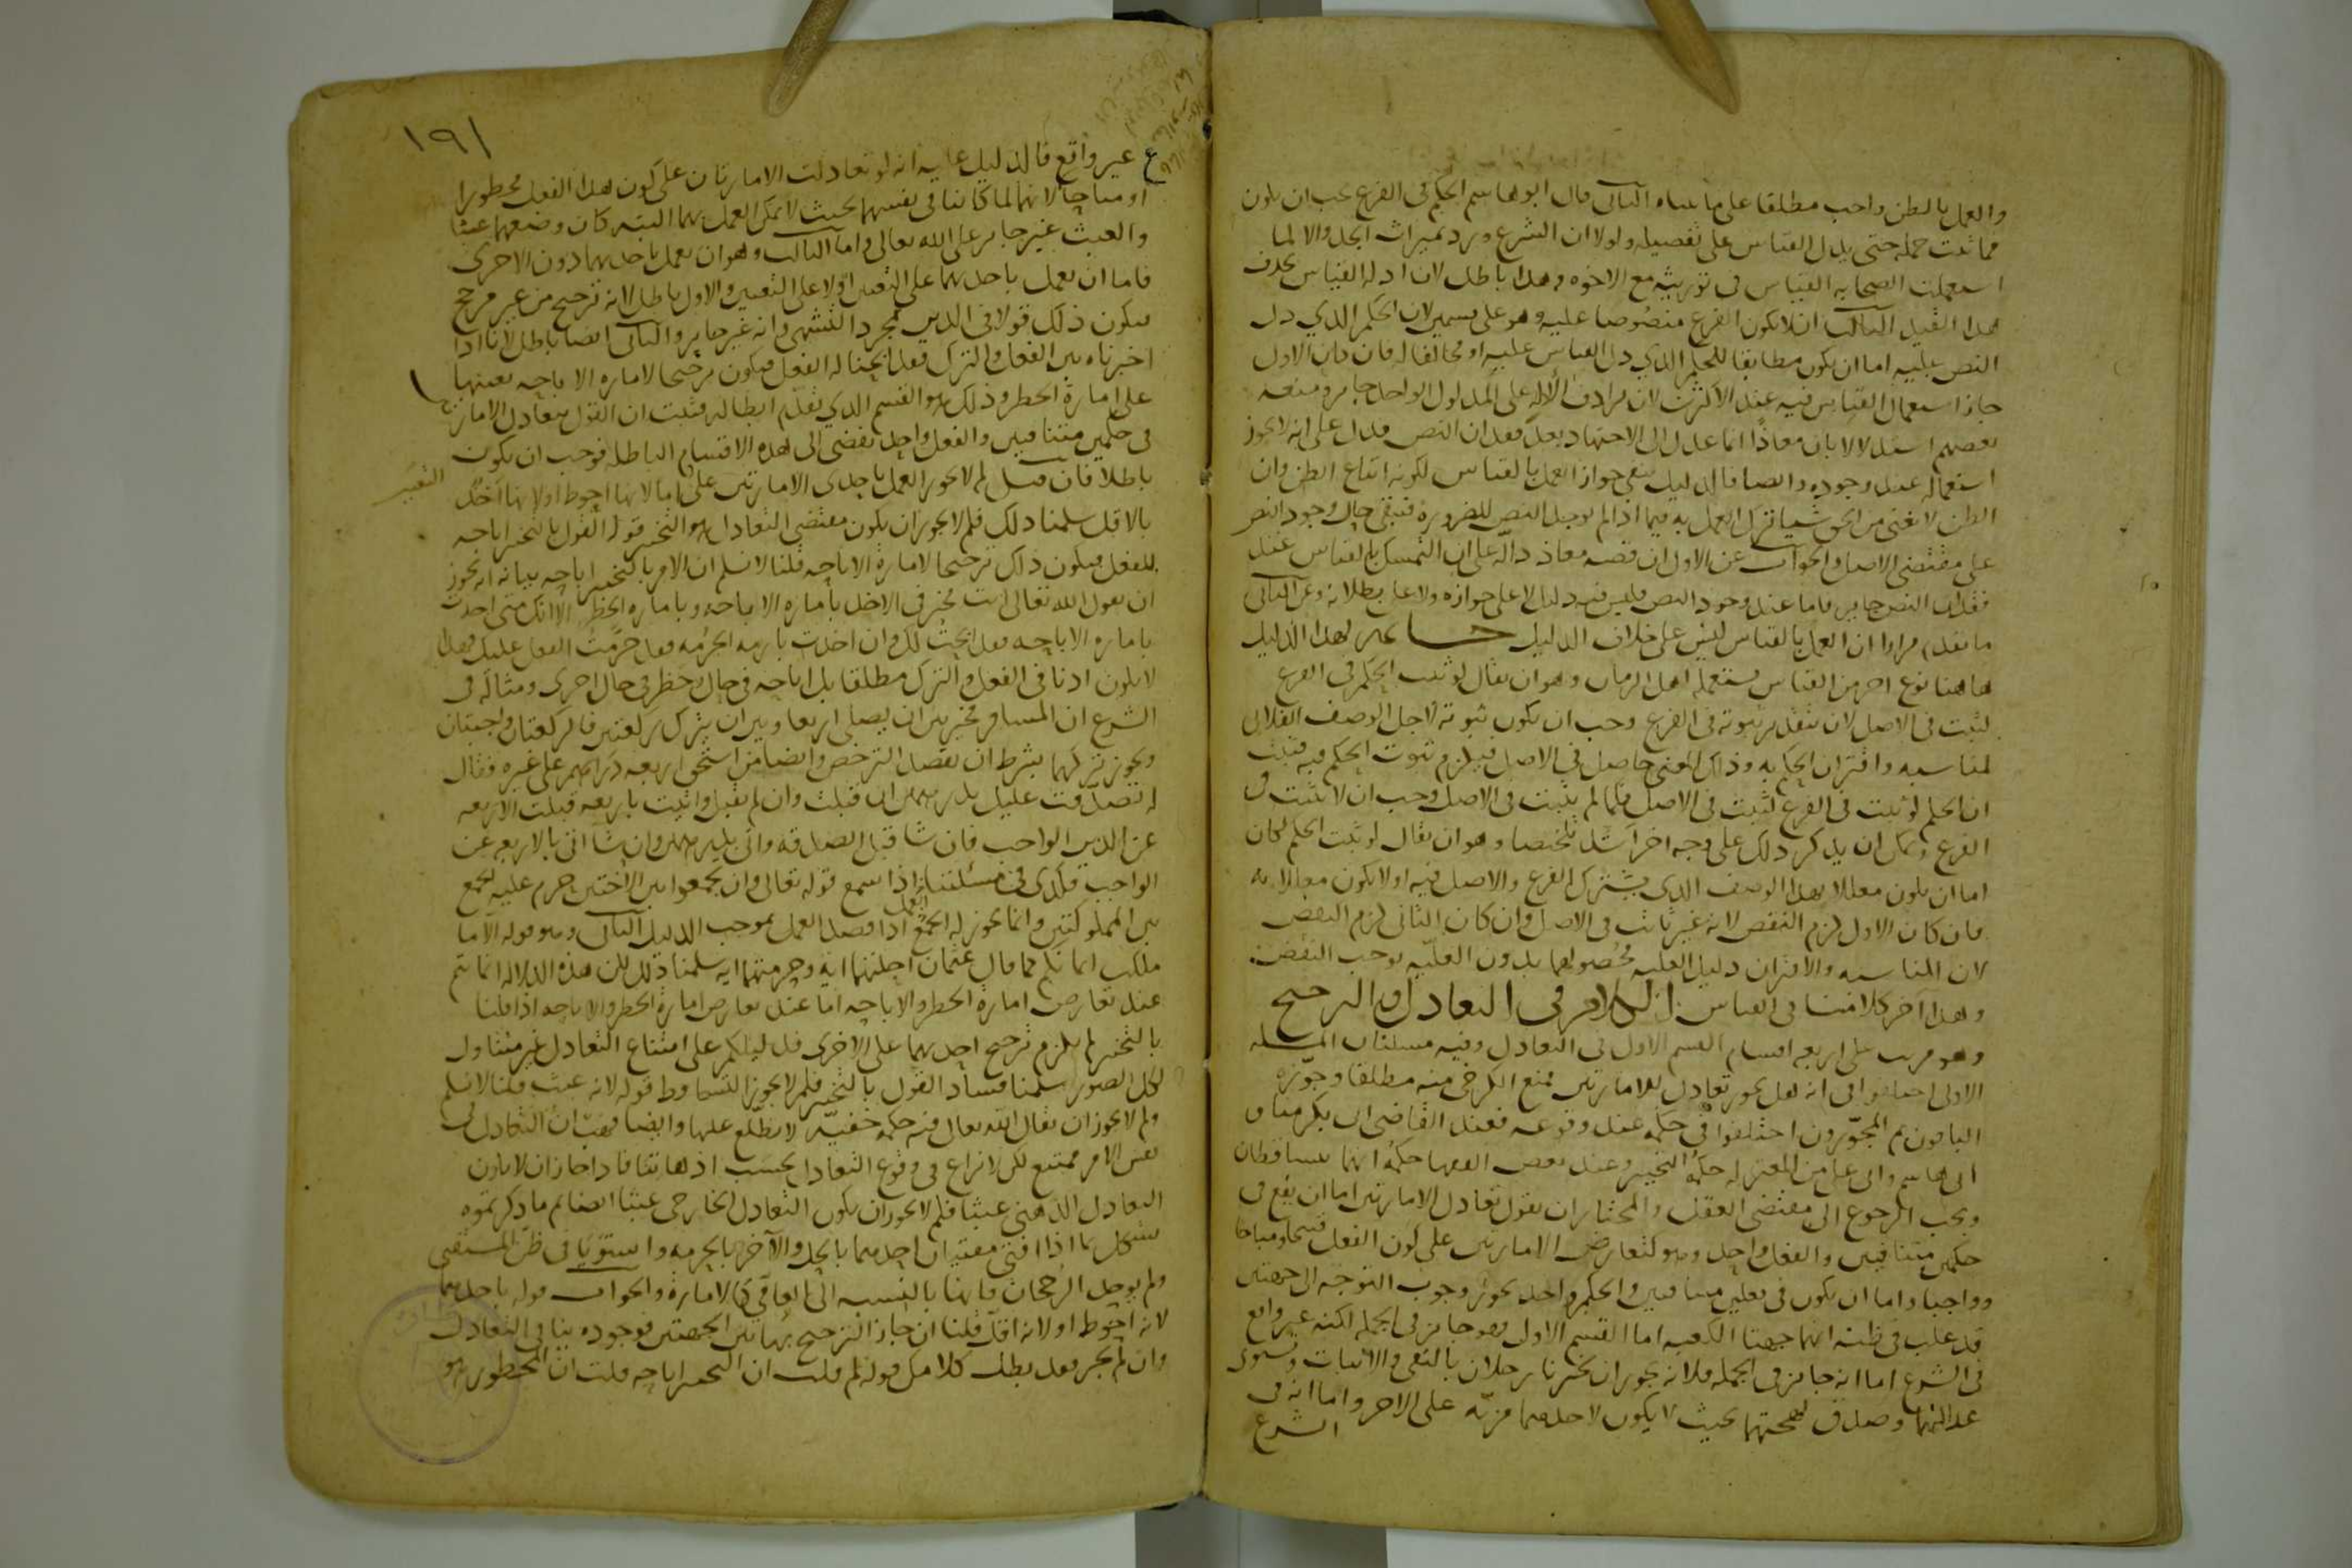 والعمل بالظن واجب مطلقا على ما بيناه الثاني قال ابو هاشم الحكم في الفرع يجب ان يكون
مما ثبت جملة حتى يدل القياس على تفصيله ولولا ان الشرع ورد بميراث الجد والا لما
استعملت الصحابه القياس في توريثه مع الاخوه وهذا باطل لان ادلة القياس بحذف
هذا القيد الثالث ان لا يكون الفرع منصوصا عليه وهو على قسمين لان الحكم الذي دل
النص عليه اما ان يكون مطابقا للحكم الذي دل القياس عليه او مخالفا له فان كان الاول
جاز استعمال القياس فيه عند الاكثرين لان ترادف الادلة على المدلول الواحد جايز ومنعه
بعضهم استدلالا بان معاذا انما عدل الى الاجتهاد بعد فقدان النص فدل على انه لا يجوز
استعماله عند وجوده وايضا فالدليل ينفي جواز العمل بالقياس لكونه اتباع الظن وان
الظن لا يغني من الحق شيا ترك العمل به فيما اذا لم يوجد النص للضرورة فتبقى حال وجود النص
على مقتضى الاصل والجواب عن الاول ان قصه معاذ دالة على ان التمسك بالقياس عند
فقدان النص جايز فاما عند وجود النص فليس فيه دلالة لا على جوازه ولا على بطلانه وعن الثاني
ما تقدم مرارا ان العمل بالقياس ليس على خلاف الدليل لهذا الدليل
هاهنا نوع اخر من القياس يستعمله اهل الزمان وهو ان يقال لو ثبت الحكم في الفرع
لثبت في الاصل لان بتقدير ثبوته في الفرع وجب ان يكون ثبوته لاجل الوصف الفلاني
لمناسبه واقتران الحكم به وذاك المعنى حاصل في الاصل فيلزم ثبوت الحكم فيه فثبت
ان الحكم لو ثبت في الفرع لثبت في الاصل فلما لم يثبت في الاصل وجب ان لا يثبت في
الفرع ويمكن ان يذكر ذلك على وجه اخر اشد تلخيصا وهو ان يقال لو ثبت الحكم لكان
اما ان يكون معللا بهذا الوصف الذي يشترك الفرع والاصل فيه او لا يكون معللا به
فان كان الاول لزم النقض لانه غير ثابت في الاصل وان كان الثاني لزم النقض
لان المناسبه والاقتران دليل العليه فحصولهما بدون العليه يوجب النقض
وهذا آخر كلامنا في القياس الكلام في التعادل والترجيح
وهو مرتب على اربعه اقسام القسم الاول في التعادل وفيه مسئلتان المسئله
الاولى اختلفوا في انه هل يجوز تعادل الامارتين فمنع الكرخي منه مطلقا وجوزه
الباقون ثم المجوزون اختلفوا في حكمه عند وقوعه فعند القاضي ابي بكر منا و
ابي هاشم وابي علي من المعتزله حكمه التخيير وعند بعض الفقها حكمه انهما يتساقطان
ويجب الرجوع الى مقتضى العقل والمختار ان نقول تعادل الامارتين اما ان يقع في
حكمين متنافيين والفعل واحد وهو كتعارض الامارتين على كون الفعل قبيحا ومباحا
وواجبا واما ان يكون في فعلين متنافيين والحكم واحد نحو وجوب التوجه الى جهتين
قد غلب في ظنه انهما جهتا الكعبه اما القسم الاول فهو جايز في الجمله لكنه غير واقع
في الشرع اما انه جايز في الجمله فلانه يجوز ان يخبرنا رجلان بالنفي والاثبات وتستوي
عدالتهما وصدق لهجتهما بحيث لا يكون لاحدهما مزية على الاخر واما انه في
الشرع
١٩١
غير واقع فالدليل عليه انه لو تعادلت الامارتان على كون هذا الفعل محظورا
او مباحا لانهما لما كانتا في نفسيهما بحيث لا يمكن العمل بهما البته كان وضعهما عبثا
والعبث غير جايز على الله تعالى واما الثالث وهو ان نعمل باحديهما دون الاخرى
فاما ان نعمل باحديهما على التعيين او لا على التعيين والاول باطل لانه ترجيح من غير مرجح
فيكون ذلك قولا في الدين بمجرد التشهي وانه غير جايز والثاني ايضا باطل لانا اذا
اخبرناه بين الفعل والترك فقد ابحنا له الفعل فيكون ترجيحا لاماره الاباحه بعينها
على امارة الحظر وذلك هو القسم الذي تقدم ابطاله فثبت ان القول بتعادل الامارتين
في حكمين متنافيين والفعل واحد يفضي الى هذه الاقسام الباطله فوجب ان يكون
باطلا فان قيل لم لا يجوز العمل باحدى الامارتين على التعيين اما لانها احوط او لانها اخذ
بالاقل سلمنا ذلك فلم لا يجوز ان يكون مقتضى التعادل هو التخيير قوله القول بالتخيير اباحه
للفعل فيكون ذاك ترجيحا لامارة الاباحه قلنا لا نسلم ان الامر بالتخيير اباحه بيانه انه يجوز
ان يقول الله تعالى انت مخير في الاخذ بامارة الاباحه وبامارة الحظر الا انك متى اخذت
بامارة الاباحه فقد ابحت لك وان اخذت بامارة الحرمه فقد حرمت الفعل عليك فهذا
لا يكون اذنا في الفعل والترك مطلقا بل اباحه في حال وحظر في حال اخرى ومثاله في
الشرع ان المسافر مخير بين ان يصلي اربعا وبين ان يترك ركعتين فالركعتان واجبتان
ويجوز تركهما بشرط ان يقصد الترخص وايضا من استحق اربعه دراهم على غيره فقال
له تصدقت عليك بدرهمين ان قبلت وان لم تقبل واتيت باربعه قبلت الاربعه
عن الدين الواجب فان شا قبل الصدقه واتى بدرهمين وان شا اتى بالاربعه عن
الواجب فكذى في مسئلتنا اذا سمع قوله تعالى وان تجمعوا بين الاختين حرم عليه الجمع
بين المملوكتين وانما يجوز له الجمع اذا قصد العمل بموجب الدليل الثاني وهو قوله الا ما
ملكت ايمانكم كما قال عثمان احلتهما ايه وحرمتهما ايه سلمنا ذلك لكن هذه الدلاله انما تتم
عند تعارض امارة الحظر والاباحه اما عند تعارض امارة الحظر والاباحه اذا قلنا
بالتخيير لم يلزم ترجيح احديهما على الاخرى فدليلكم على امتناع التعادل غير متناول
لكل الصور سلمنا فساد القول بالتخيير فلم لا يجوز التساقط قوله لانه عبث قلنا لا نسلم
ولم لا يجوز ان يقال لله تعالى فيه حكمة خفيه لا نطلع عليها وايضا فهب ان التعادل في
نفس الامر ممتنع لكن لا نزاع في وقوع التعادل بحسب اذهاننا فاذا جاز ان لا يكون
التعادل الذهني عبثا فلم لا يجوز ان يكون التعادل الخارجي عبثا ايضا ثم ما ذكرتموه
يشكل بما اذا افتى مفتيان احدهما بالحل والآخر بالحرمه واستويا في ظن المستفتي
ولم يوجد الرجحان فانهما بالنسبه الى العامي كالامارة والجواب قوله باحديهما
لانه احوط او لانه اقل قلنا ان جاز الترجيح بهاتين الجهتين فوجوده ينافي التعادل
وان لم يجز فقد بطل كلامك قوله لم قلت ان التخيير اباحه قلت ان المحظور هو